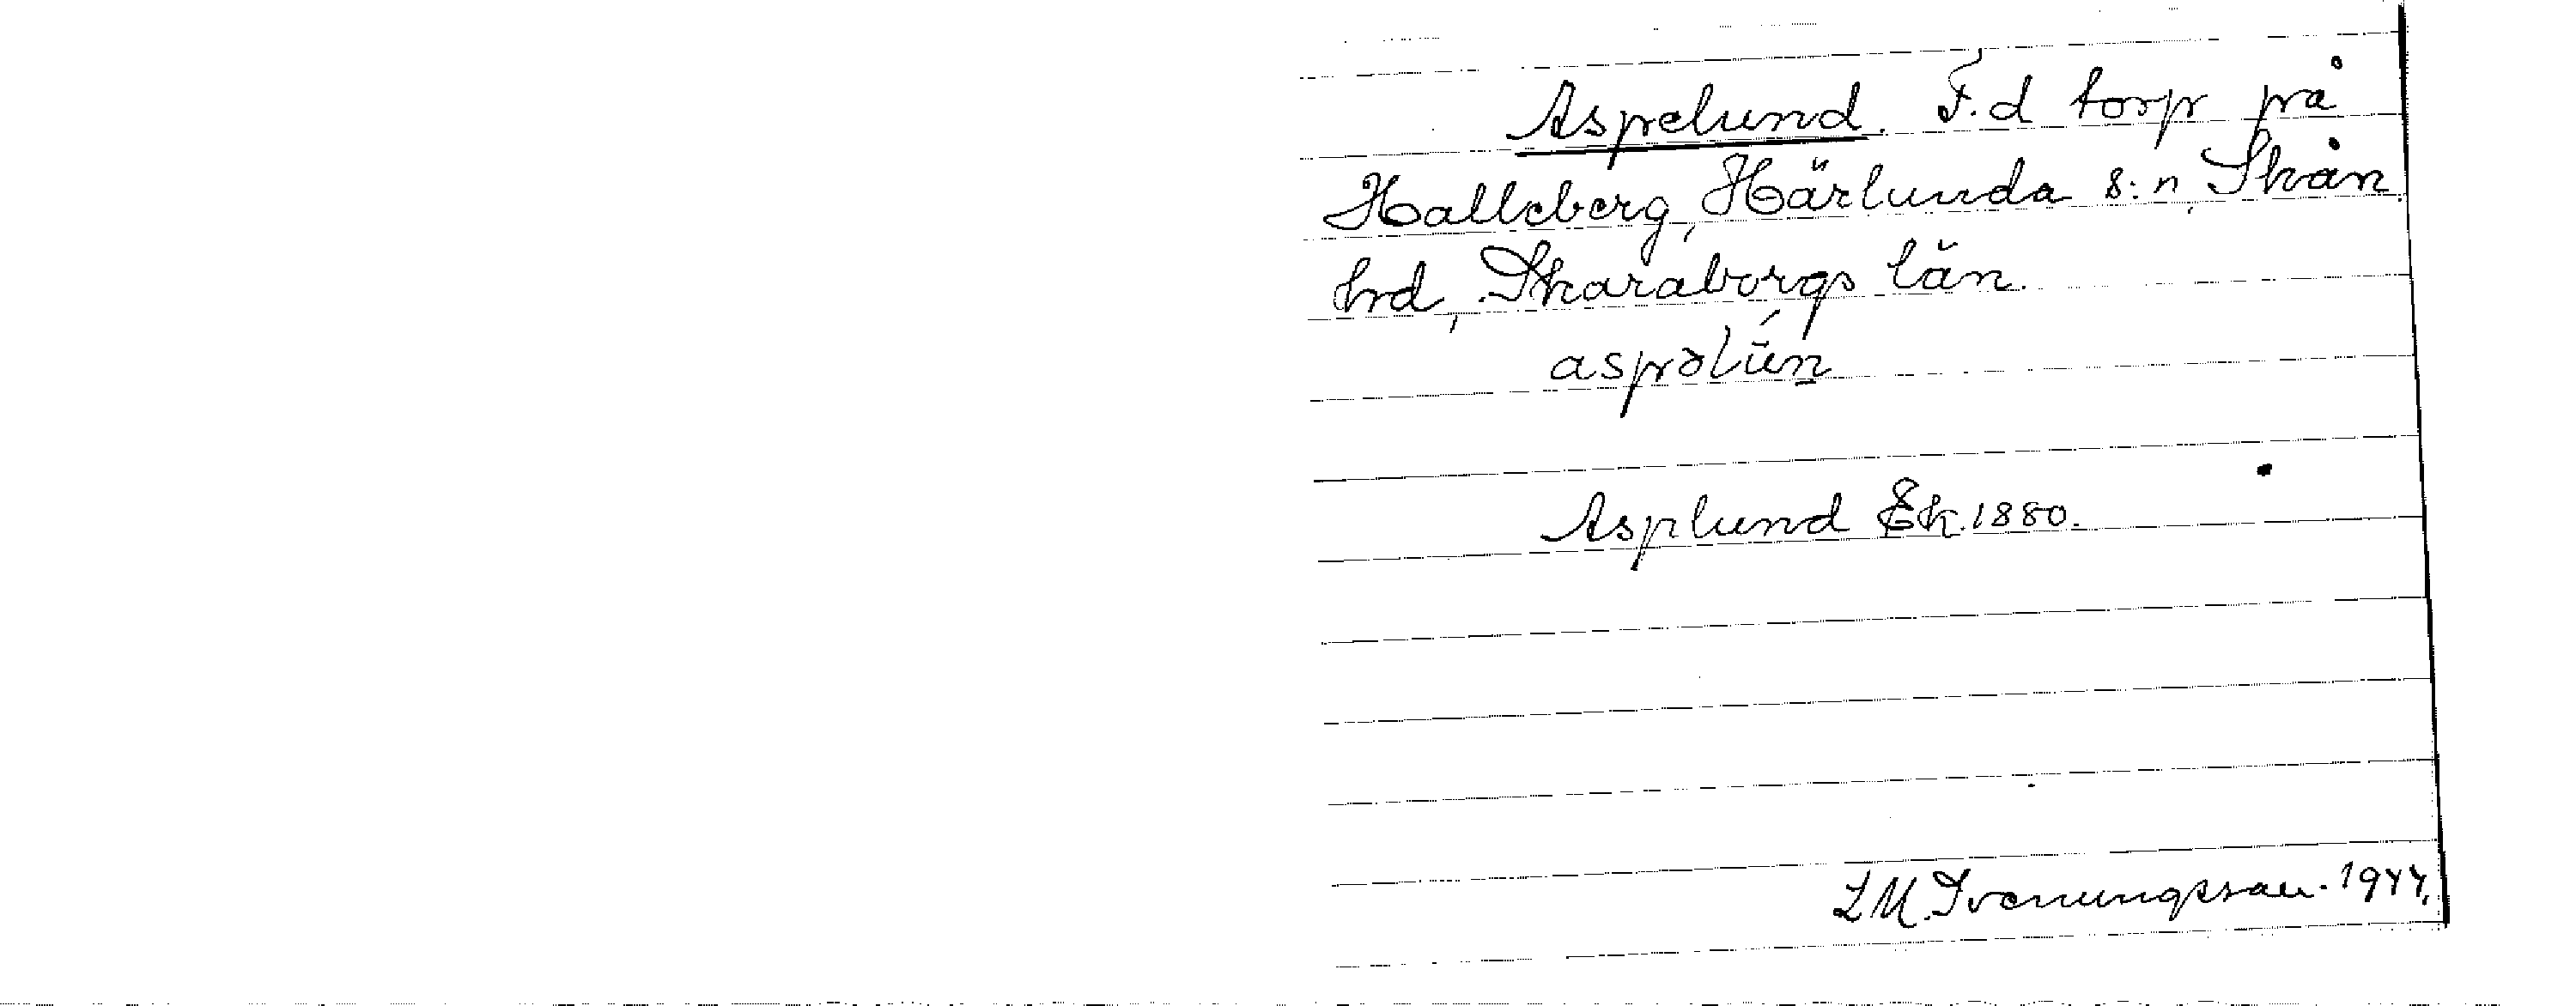 Aspelund. F.d torp på
Halleberg, Härlunda s:n, Skån.
hrd, Skaraborgs län.
aspəlún̠
Asplund Ek. 1880.
L M. Svenungsson. 1944.